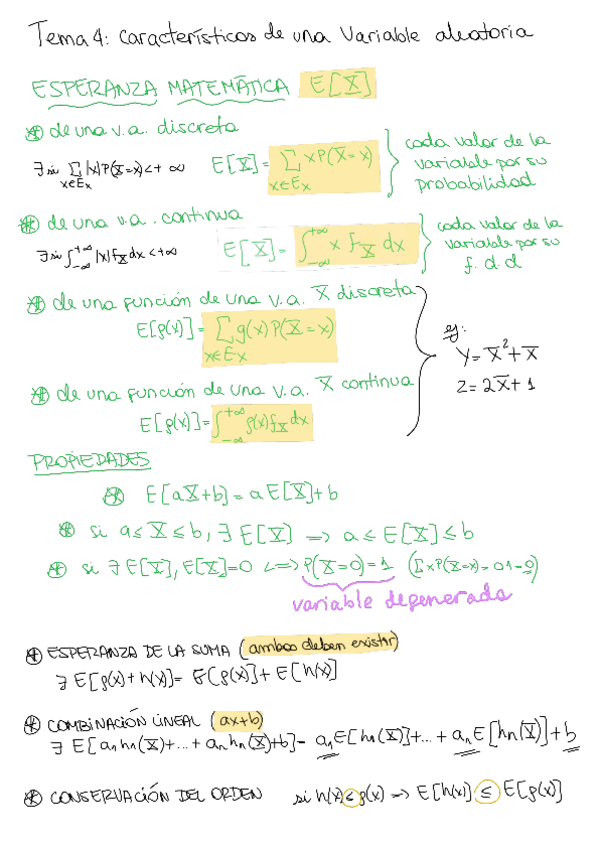 Tema 4: Características de una Variable aleatoria
ESPERANZA MATEMÁTICA E[X]
⊛ de una v.a. discreta
∃ si ∑ |x|P(X=x)<+∞ E[X]= ∑ xP(X=x)
x∈Ex x∈Ex
cada valor de la
variable por su
probabilidad
⊛ de una v.a. continua
∃ si ∫_{-∞}^{+∞} |x|f_X dx <+∞ E[X]= ∫_{-∞}^{+∞} x f_X dx
cada valor de la
variable por su
f. d. d
⊛ de una función de una v.a. X discreta
E[g(x)]= ∑ g(x)P(X=x)
x∈Ex
⊛ de una función de una v.a. X continua
E[g(x)]= ∫_{-∞}^{+∞} g(x)f_X dx
ej:
Y=X²+X
Z=2X+1
PROPIEDADES
⊛ E[aX+b]=aE[X]+b
⊛ si a≤X≤b, ∃ E[X] ⟹ a≤E[X]≤b
⊛ si ∃ E[X], E[X]=0 ⟺ P(X=0)=1 (∑xP(X=x)=0·1=0)
variable degenerada
⊛ ESPERANZA DE LA SUMA (ambas deben existir)
∃ E[g(x)+h(x)]= E[g(x)]+E[h(x)]
⊛ COMBINACIÓN LINEAL (ax+b)
∃ E[a₁h₁(X)+...+aₙhₙ(X)+b]= a₁E[h₁(X)]+...+aₙE[hₙ(X)]+b
⊛ CONSERVACIÓN DEL ORDEN si h(x)≤g(x) ⟹ E[h(x)] ≤ E[g(x)]